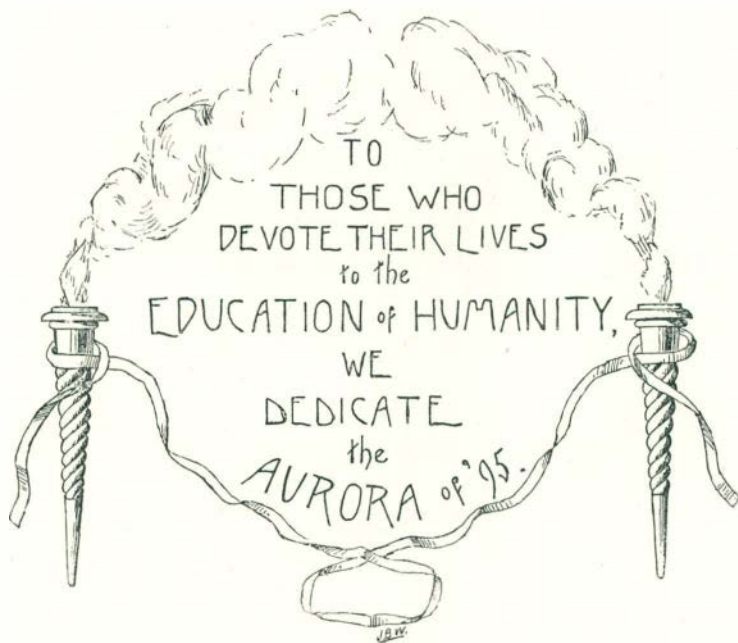 TO
THOSE WHO
DEVOTE THEIR LIVES
to the
EDUCATION of HUMANITY,
WE
DEDICATE
the
AURORA of '95.
J.B.W.